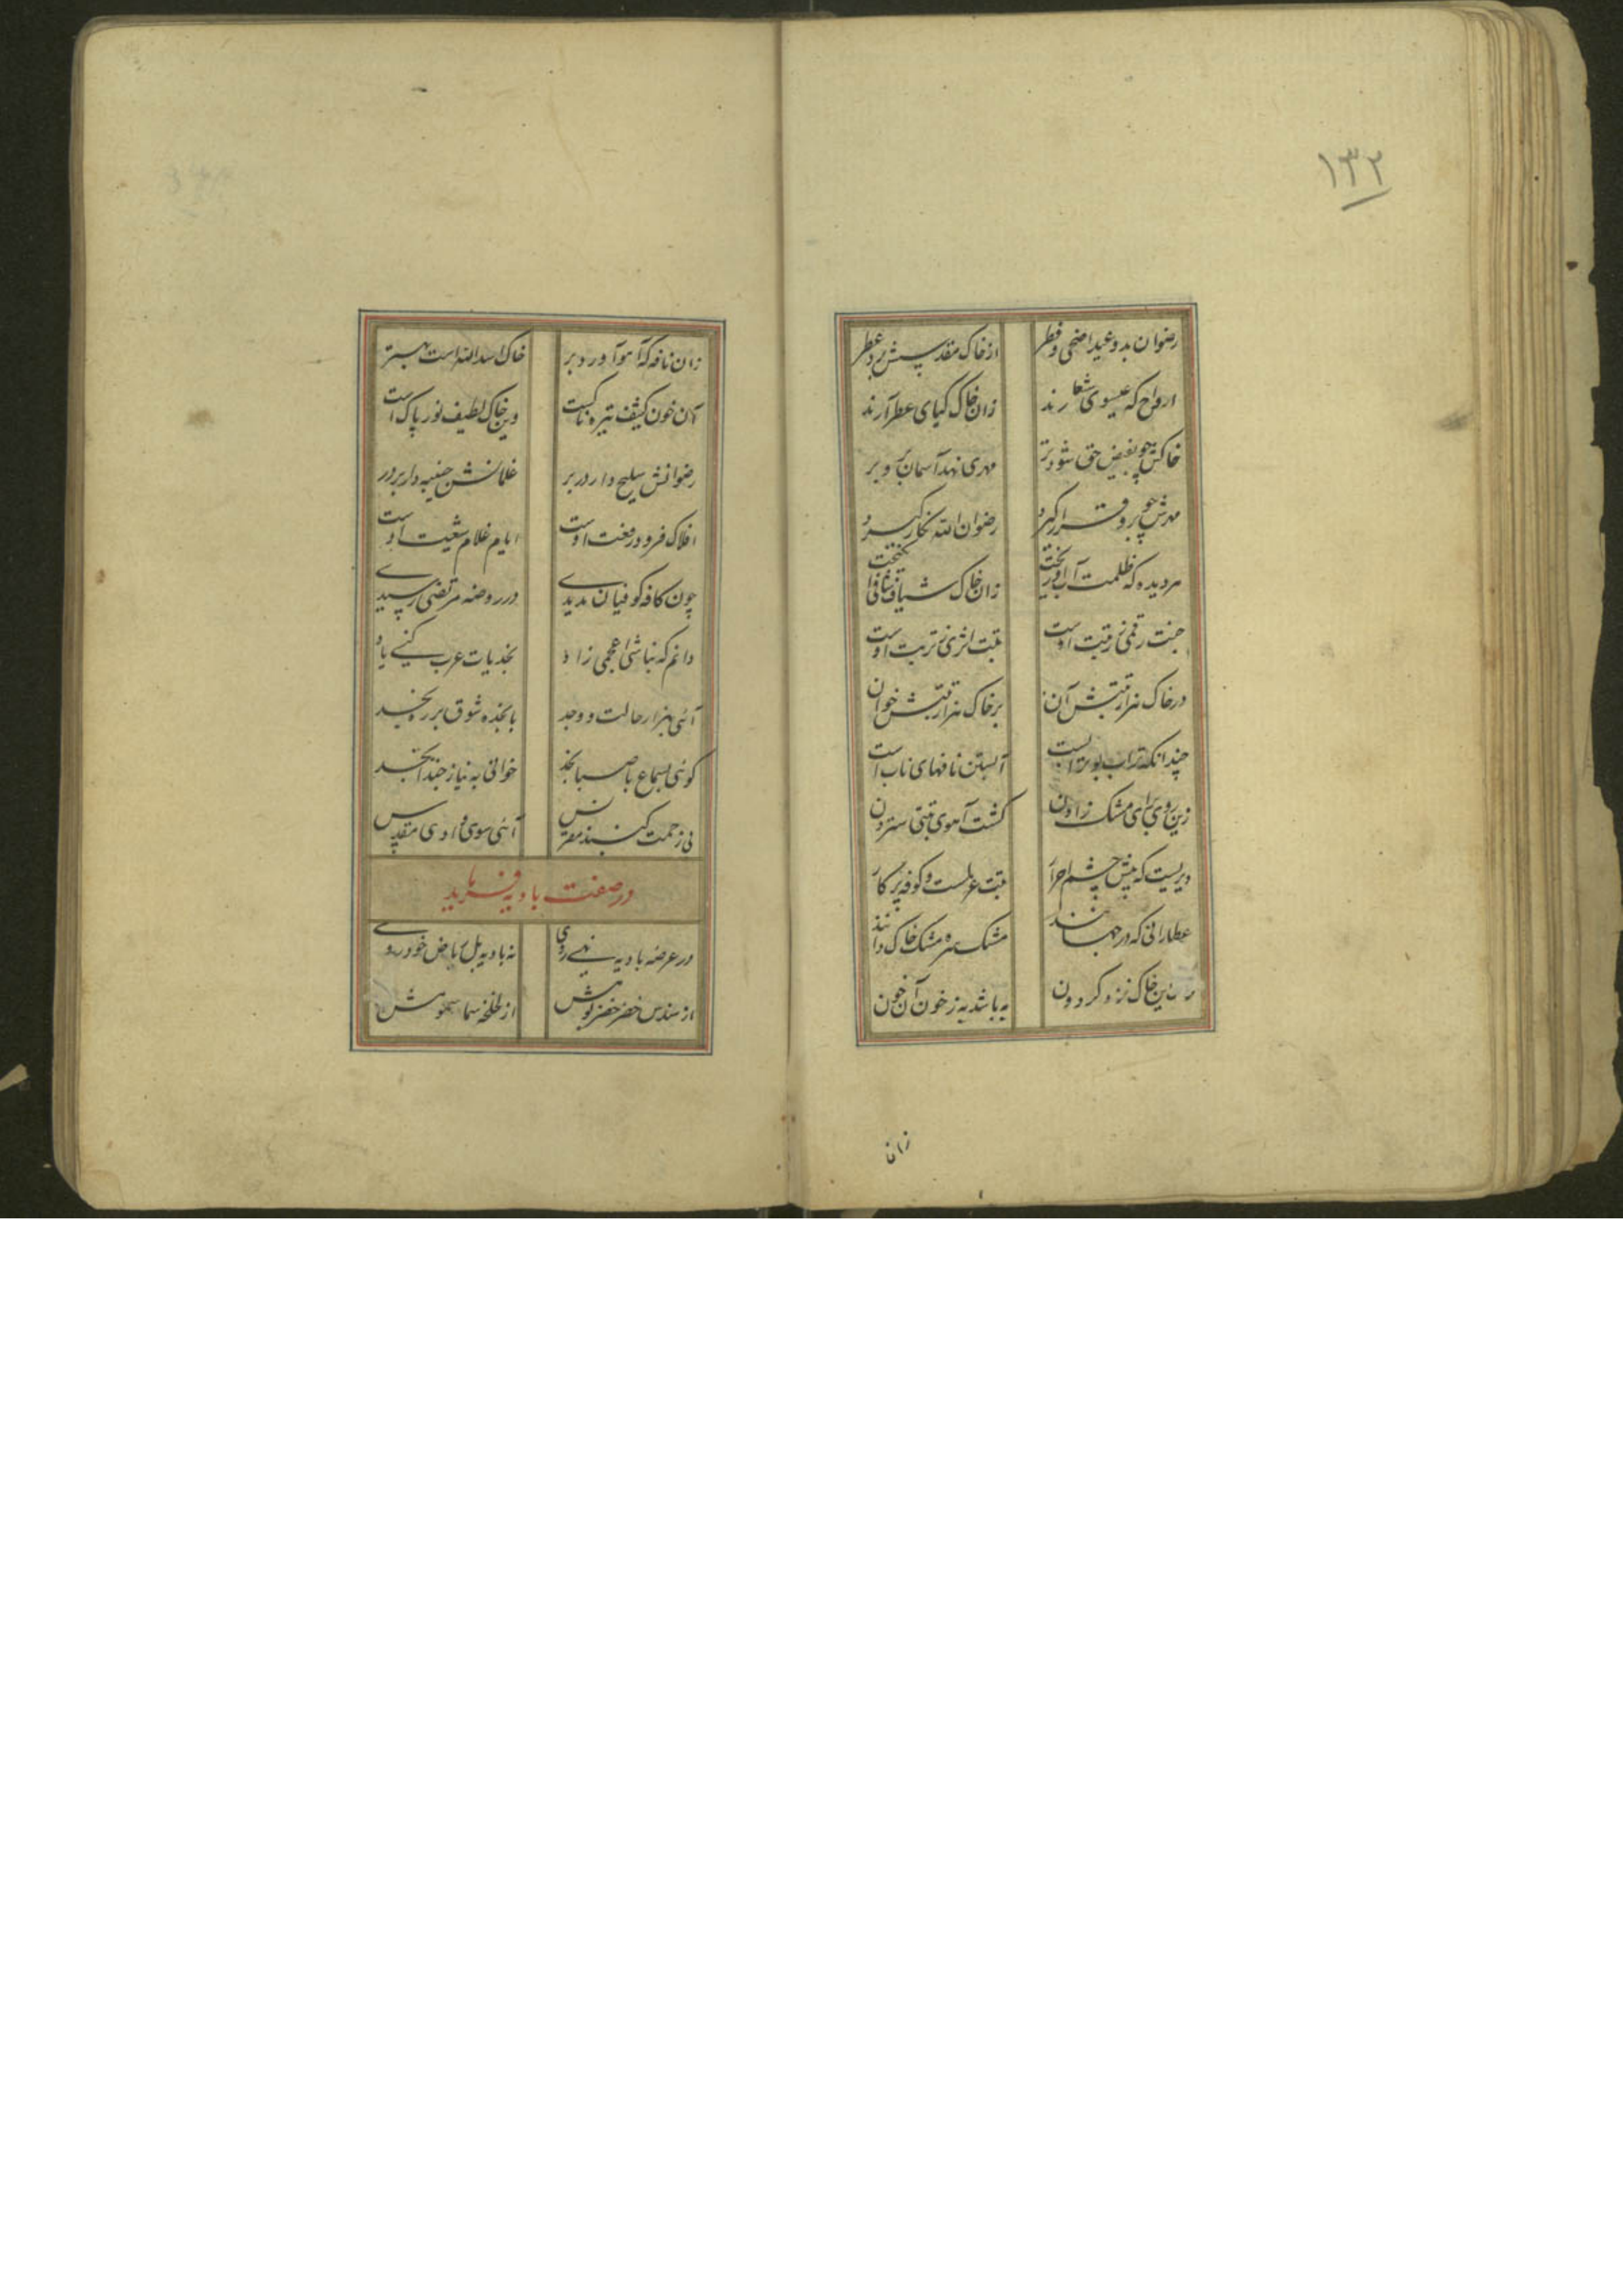 ۱۳۲
رضوان بدو عید اضحی و فطر از خاک مقدسش برد عطر
ارواح که عیسوی شعارند زان خاک گیای عطر آرند
خاکش چو بفیض حق شود تر مهری نهد آسمان برو بر
مهرش چو برو قرار گیرد رضوان الله نگار گیرد
هر دیده که ظلمت آب او ریخت زان خاک شیاف
جنت رقمی ز رتبت اوست تبت اثری ز تربت اوست
در خاک هزار تبتش دان بر خاک هزار رتبتش خوان
چندانکه تراب بوتراب است آبستن نافهای ناب است
زین روی برای مشک زادن گشت آهوی تبتی سترون
دیریست که پیش چشم احرار تبت عطلست و کوفه پر کار
عطارانی که در جهانند مشک سره مشک خاک دانند
این خاک نزد گردون به باشد به ز خون آن خون
زانا
زان نافه که آهو آورد بر خاک اسد الله است بهتر
آن خون کثیف تیره ناکست وین خاک لطیف نور پاک است
رضوانش سلیح دار در بر غلمانش جنیبه دار بر در
افلاک فرود رفعت اوست ایام غلام شیعت اوست
چون کافه کوفیان بدیدی در روضه مرتضی رسیدی
دانم که نباشی اعجمی زاد نجدیات عرب کنی یاد
آئی بهزار حالت و وجد با نجده شوق بر ره نجد
گوئی بسماع با صبا نجد خوانی به نیاز حبذا نجد
نی زحمت گنبد مقرنس آئی سوی وادی مقدس
در صفت بادیه فرماید
در عرصه بادیه نهی روی نه بادیه بل ریاض خودروی
از سندس خضر خضر پوشش از لخلخه سما سمومش